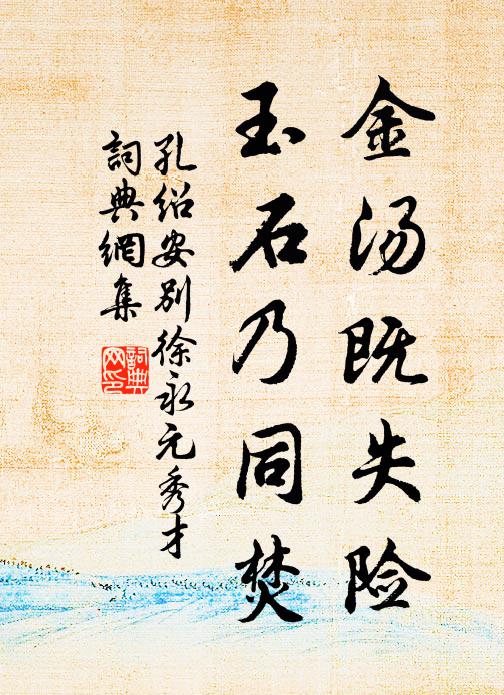 金汤既失险
玉石乃同焚
孔绍安别徐永元秀才
詞典網集
詞典網印